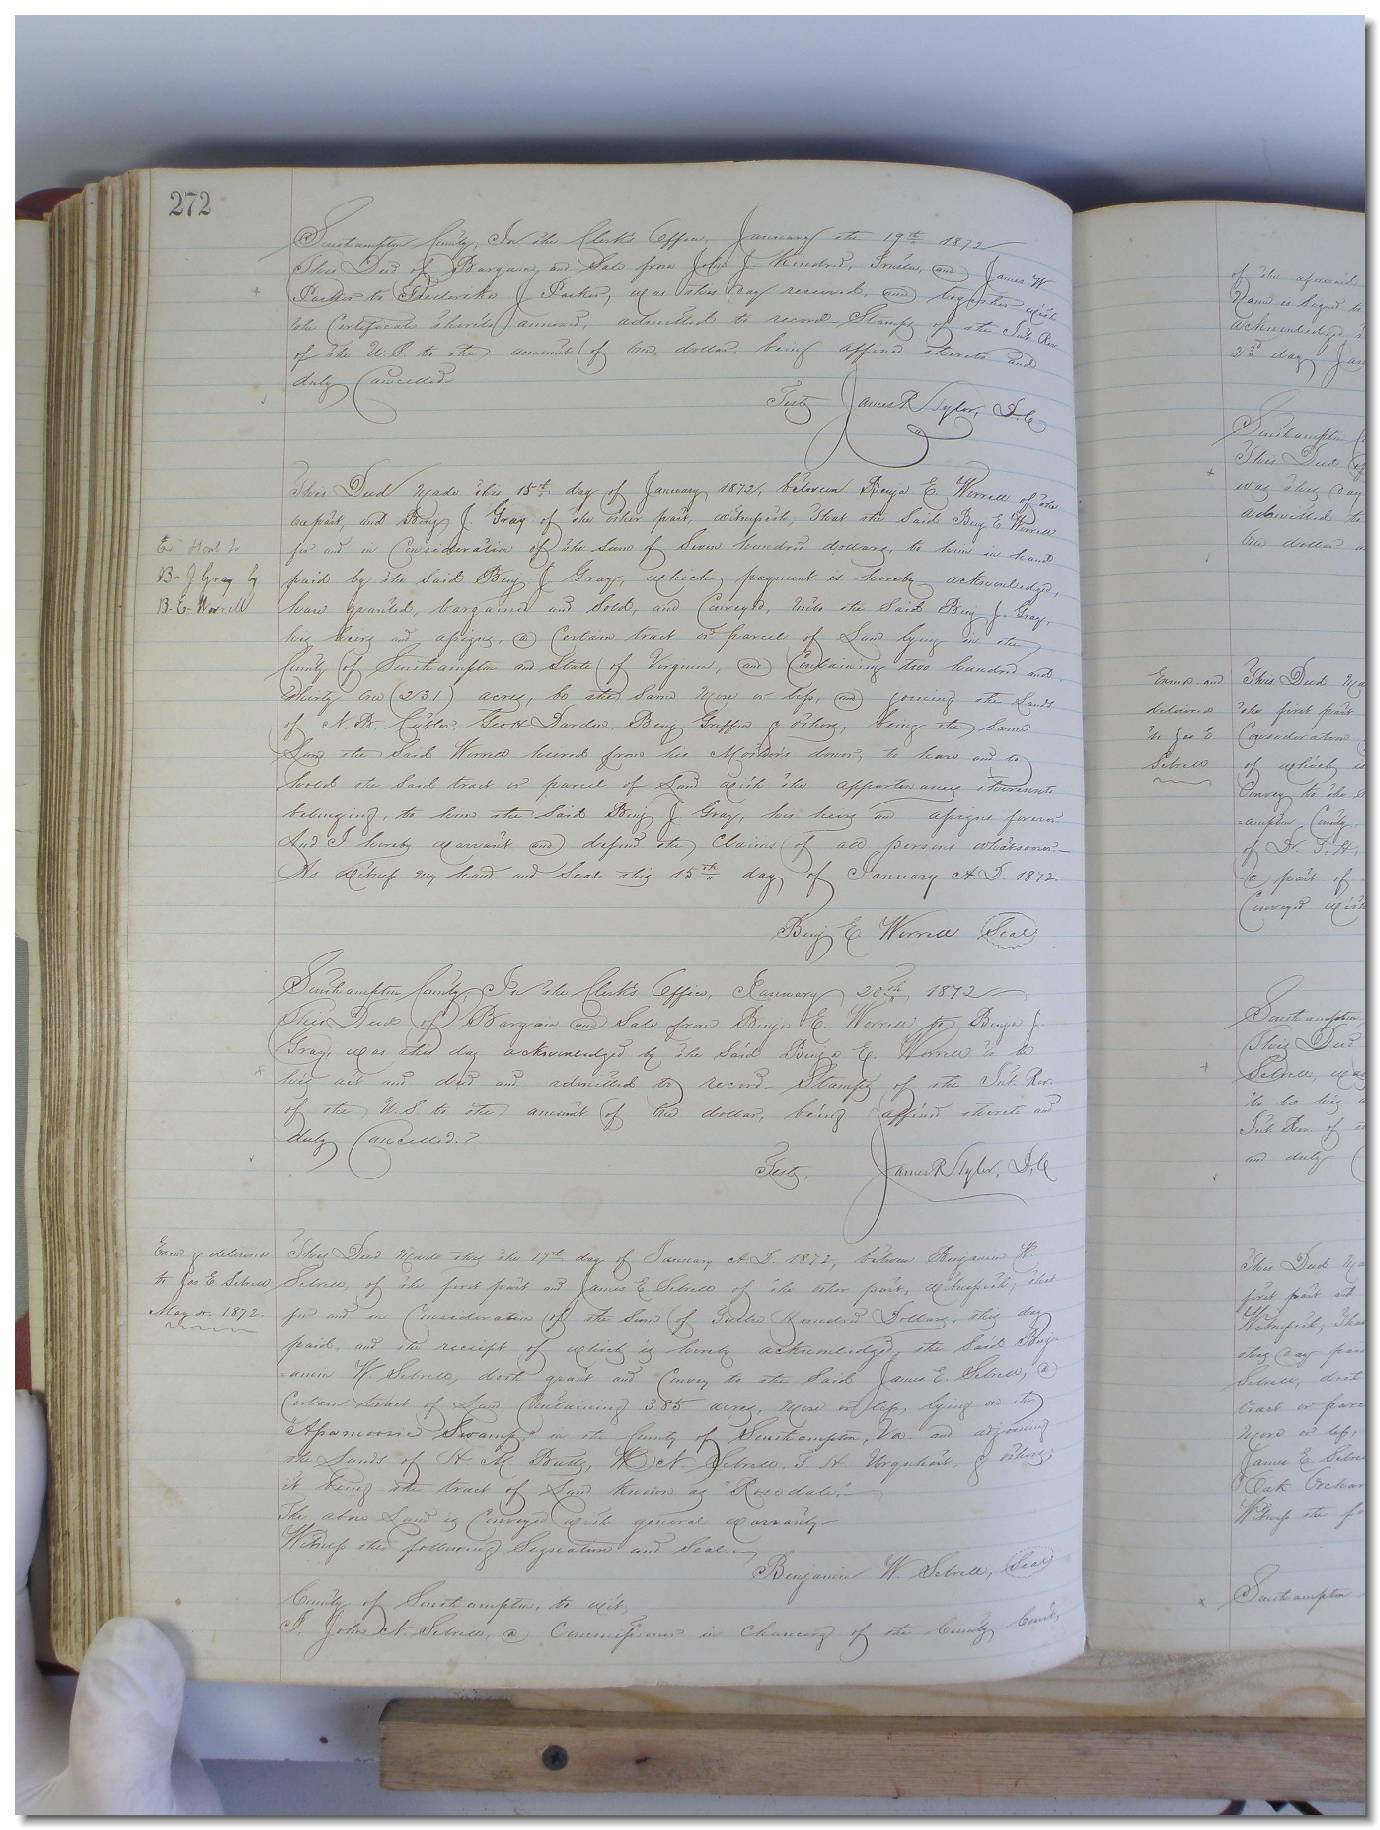 272
Southampton County, In the Clerk's Office, January the 19th 1872
This Deed of Bargain and Sale from John J. Kindred, Trustee, and James W
Parker to Frederika J Parker, was this day received, and together with
the Certificate thereto annexed, admitted to record. Stamps of the Int. Rev
of the U.S. to the amount of one dollar being affixed thereto and
duly Cancelled.
Teste James R Tyler, D.C.
This Deed made this 15th day of January 1872, between Benja E. Worrell of the
one part, and Benj J. Gray of the other part, witnesseth, That the Said Benj E Worrell
for and in Consideration of the Sum of Seven hundred dollars, to him in hand
paid by the Said Benj J Gray, which payment is hereby acknowledged,
have granted, bargained and Sold, and Conveyed, unto the Said Benj J. Gray,
his heirs and assigns, a Certain tract or parcel of Land lying in the
County of Southampton and State of Virginia, and Containing two hundred and
thirty one (231) acres, be the Same more or less, and joining the Lands
of Geo H Darden, Benj Griffin & others, being the Same
Land the Said Worrell heired from his Mother's dower, to have and to
hold the Said tract or parcel of Land with the appurtenances thereunto
belonging, to him the Said Benj J Gray, his heirs and assigns forever
And I hereby warrant and defend the Claims of all persons whatsoever.
As Witness my hand and Seal this 15th day of January A.D. 1872.
Benj E Worrell Seal
B. J Gray by
B. E. Worrell
Southampton County, In the Clerk's Office, January 20th, 1872
This Deed of Bargain and Sale from Benja E. Worrell to Benja J.
Gray, was this day acknowledged by the Said Benja E. Worrell to be
his act and deed and admitted to record. Stamps of the Int. Rev.
of the U.S. to the amount of one dollar, being affixed thereto and
duly Cancelled.
Teste. James R Tyler, D.C.
Exmd & delivered
to Jas E. Sebrell
May 1872.
This Deed made this the 17th day of January A.D. 1872, between Benjamin W.
Sebrell of the first part and James E Sebrell of the other part, Witnesseth, that
for and in Consideration of the Sum of Twelve Hundred Dollars, this day
paid, and the receipt of which is hereby acknowledged, the Said Benja
=amin W. Sebrell, doth grant and Convey to the Said James E. Sebrell, a
Certain tract of Land Containing 385 acres, more or less, lying on the
"Assamoosic Swamp" in the County of Southampton, Va. and adjoining
the Lands of H M Butts, W N. Sebrell, T. H. Urquhart, & others;
it being the tract of Land known as "Rosedale".
The above Land is Conveyed with general warranty.
Witness the following Signature and Seal.
Benjamin W. Sebrell, Seal
County of Southampton, to wit,
I, John N Sebrell, a Commissioner in Chancery of the County Court,
of the aforesaid
Name is Signed to
acknowledged
23d day Jan
Southampton
This Deed
was this day
admitted to
one dollar
Exmd and
delivered
to Jas E
Sebrell
This Deed Ma
the first part
Consideration
of which is
Convey to the S
=ampton County
of T. H.
part of
Conveyed with
Southampton
This Deed
Sebrell, was
to be his
Int. Rev. of
and duly
This Deed Ma
first part and
Witnesseth, That
this day paid
Sebrell, doth
tract or parc
more or less,
James E. Sebre
"Oak Orchar
Witness the fo
Southampton